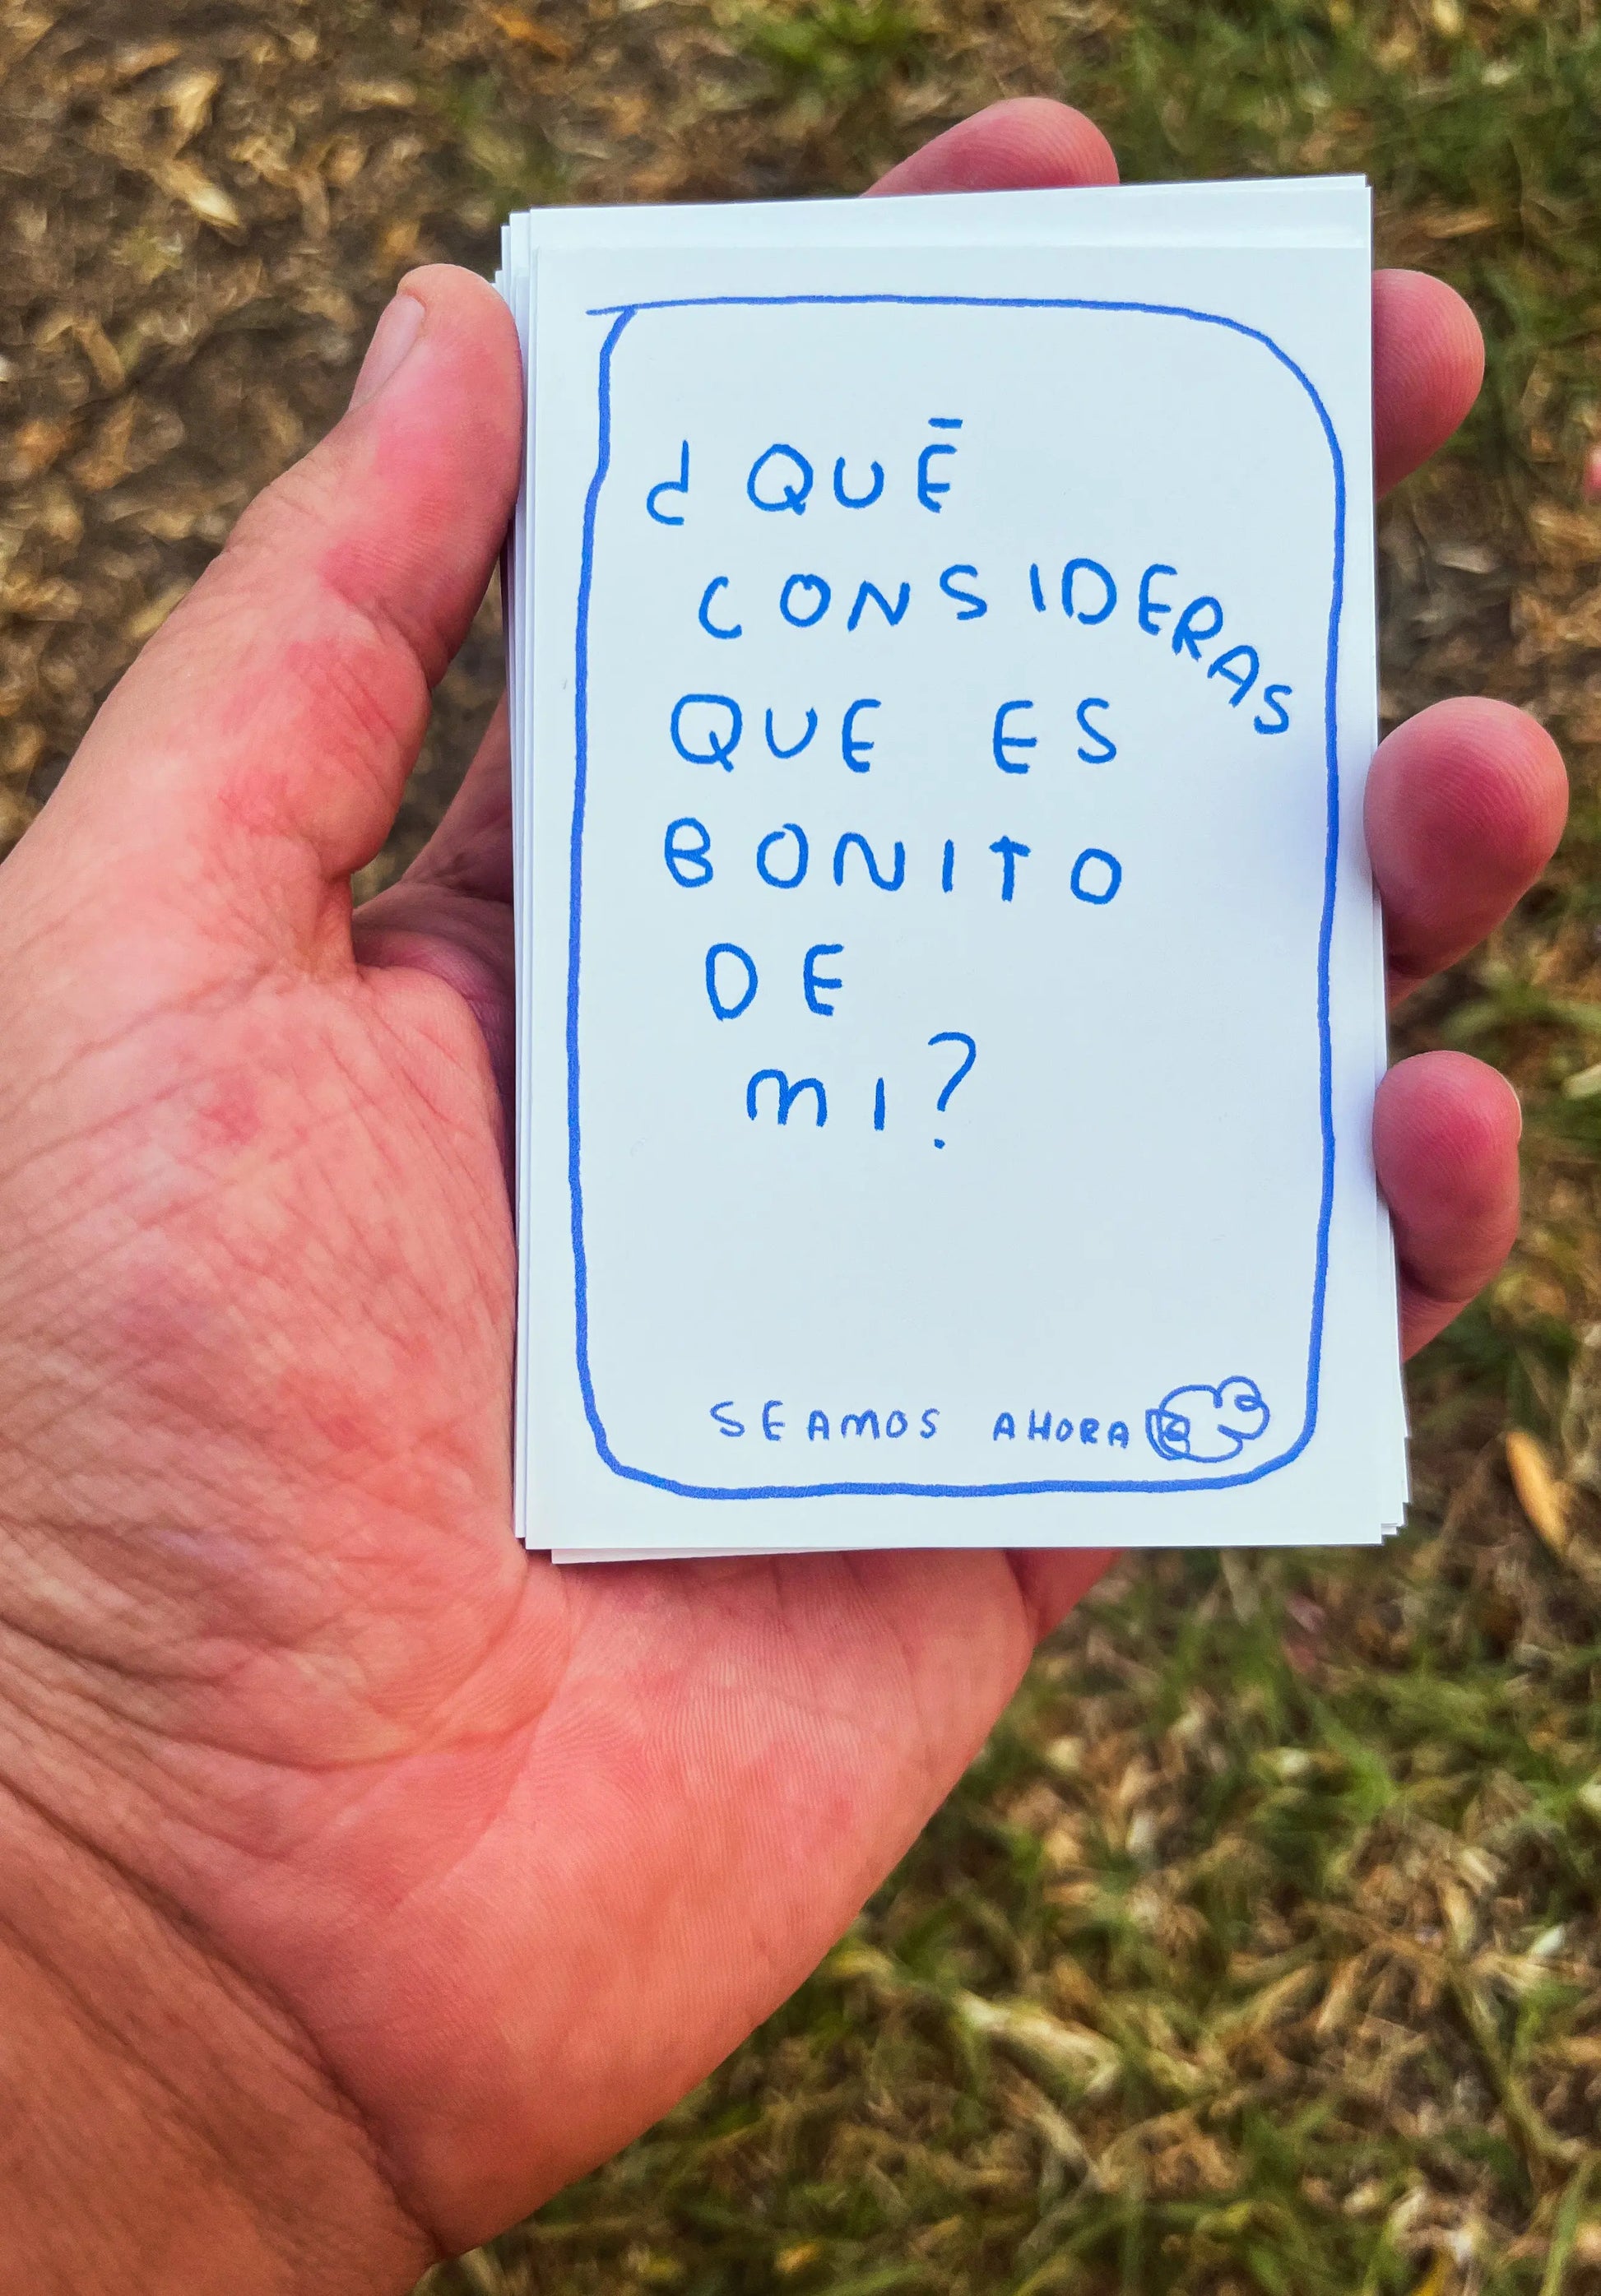 ¿QUÉ
CONSIDERAS
QUE ES
BONITO
DE
MI?
SEAMOS AHORA